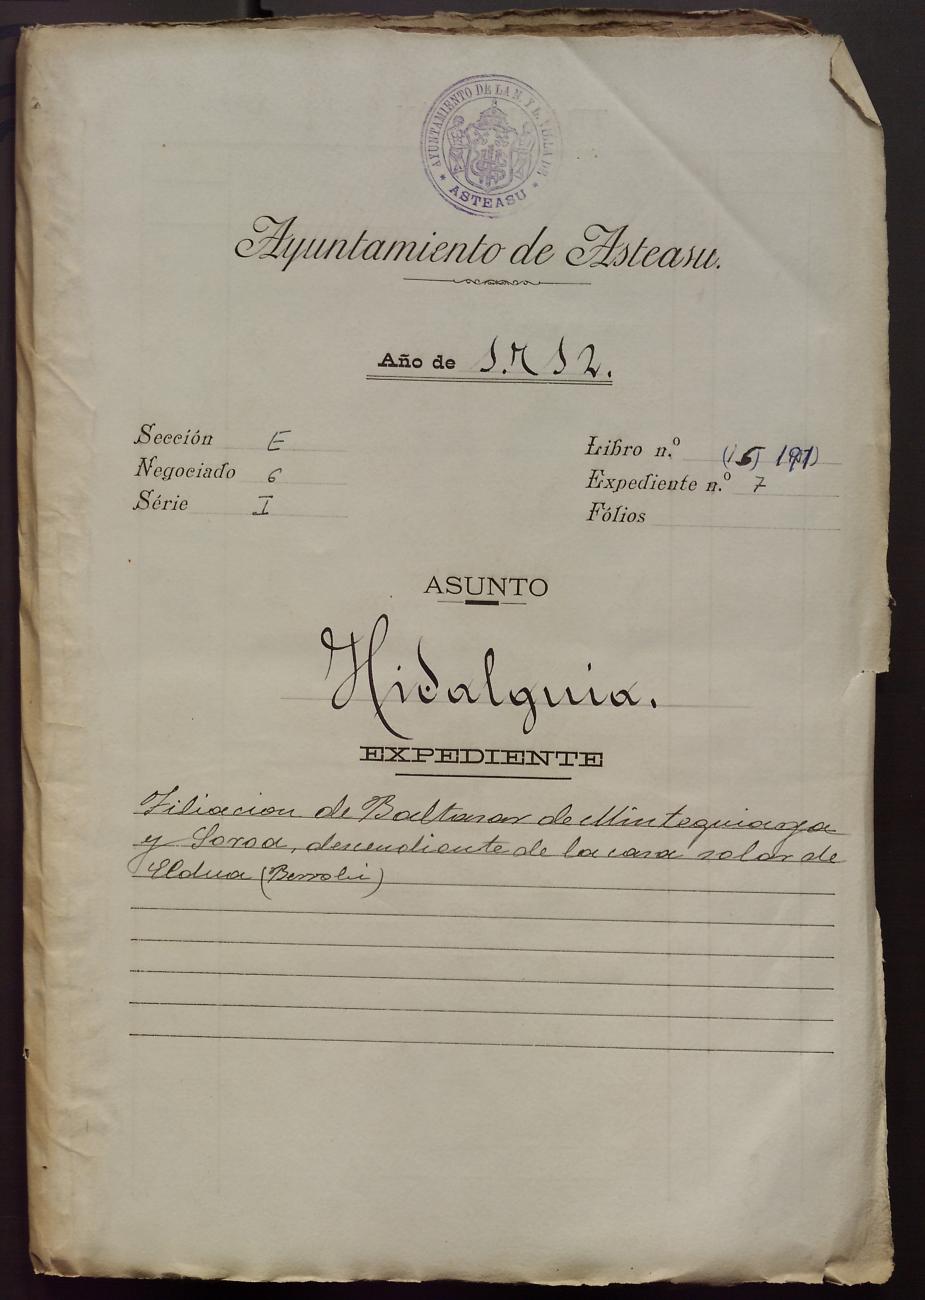 AYUNTAMIENTO DE LA N. Y L. VILLA DE
* ASTEASU *
Ayuntamiento de Asteasu.
Año de 1.712.
Sección E
Negociado 6
Série I
Libro n.º
Expediente n.º 7
Fólios
ASUNTO
Hidalguia.
EXPEDIENTE
Filiacion de Baltasar de Minteguiaga
y Soroa, descendiente de la casa solar de
Eldua (Berrobi)